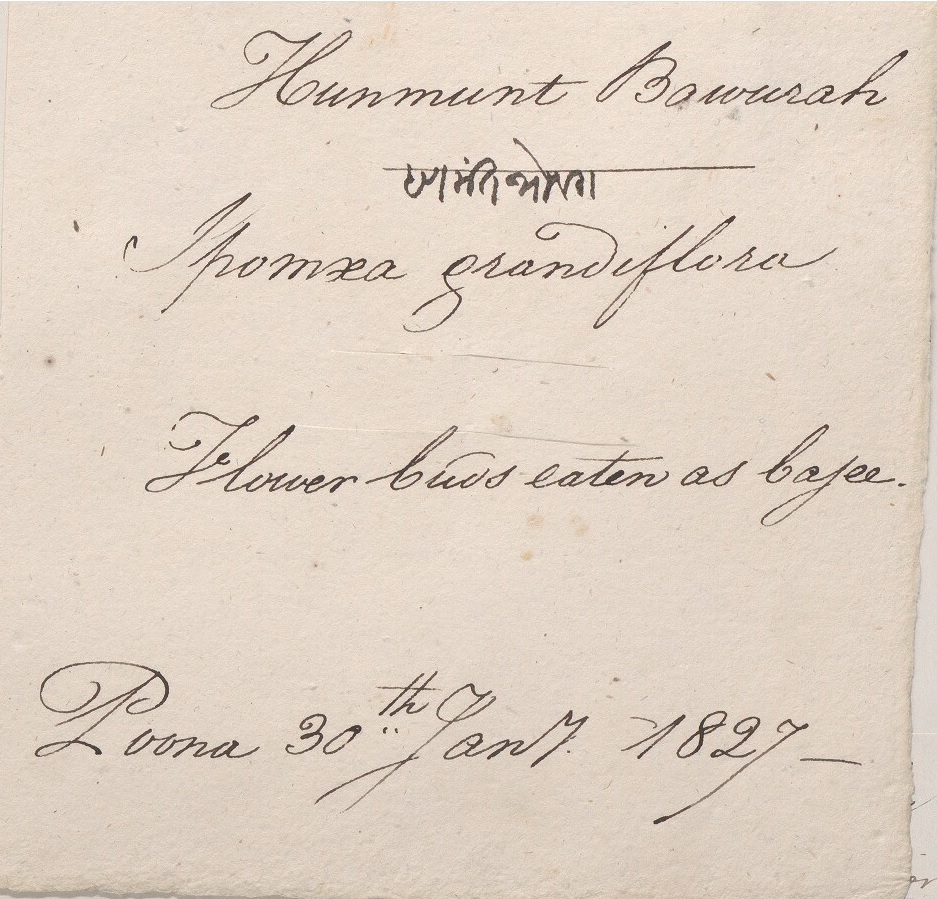 Hunmunt Bawurah
Ipomæa grandiflora
Flower buds eaten as bajee.
Poona 30th Jany. 1827 —